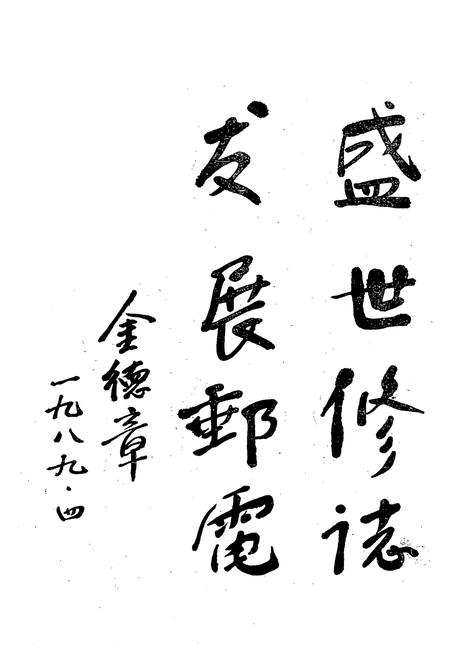 盛世修誌
发展郵電
金德章
一九八九·四